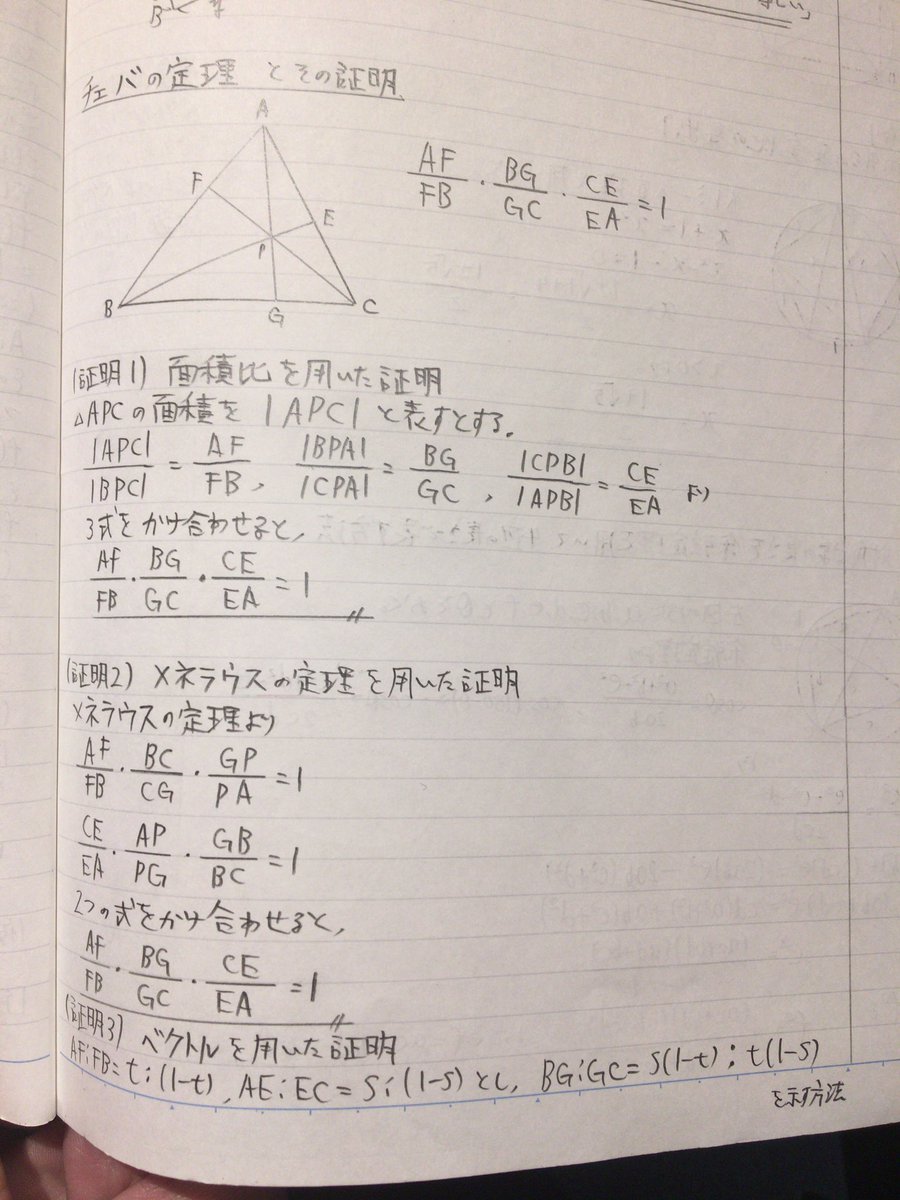 チェバの定理 とその証明
A
F
E
P
B
G
C
AF/FB・BG/GC・CE/EA=1
(証明1) 面積比を用いた証明
△APCの面積を |APC| と表すとする。
|APC|/|BPC| = AF/FB, |BPA|/|CPA| = BG/GC, |CPB|/|APB| = CE/EA より
3式をかけ合わせると,
AF/FB・BG/GC・CE/EA=1
(証明2) メネラウスの定理を用いた証明
メネラウスの定理より
AF/FB・BC/CG・GP/PA=1
CE/EA・AP/PG・GB/BC=1
2つの式をかけ合わせると,
AF/FB・BG/GC・CE/EA=1
(証明3) ベクトルを用いた証明
AF:FB=t:(1-t), AE:EC=S:(1-S)とし, BG:GC=S(1-t):t(1-S)
を示す方法